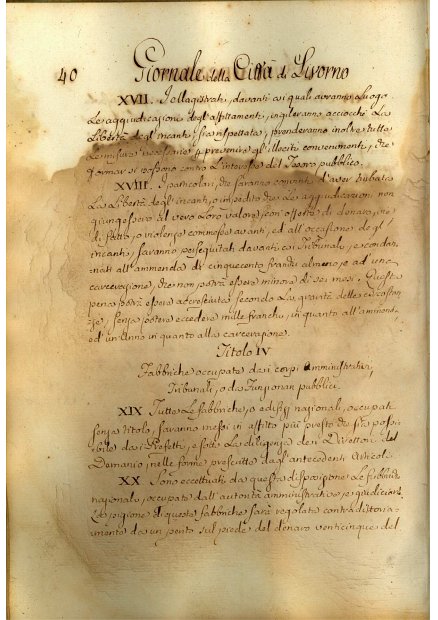 40 Giornale della Città di Livorno
XVII. I Magistrati, davanti ai quali avranno luogo
Le aggiudicazioni degli affittamenti, invigileranno acciocchè La
Libertà degl'incanti sia rispettata, e prenderanno inoltre tutte
Le misure necessarie a prevenire gl'illeciti convenimenti, che
formar si possono contro L'interesse del Tesoro pubblico.
XVIII. I particolari, che saranno convinti d'aver turbata
La Libertà degl'incanti, o impedito che Le aggiudicazioni non
giungessero al vero Loro valore, con offerta di denaro, o
di fatto, o violenze commesse avanti, ed all'occasione degl'
incanti, saranno perseguitati davanti ai Tribunali, e condan
nati all'ammenda di cinquecento franchi almeno, e ad una
carcerazione, che non potrà essere minore di sei mesi. Questa
pena potrà essere accresciuta secondo La gravità delle circostan
ze, senza potere eccedere mille franchi, in quanto all'ammenda
ed un'anno in quanto alla carcerazione.
Titolo IV
Fabbriche occupate dai corpi Amministrativi,
Tribunali, o da Funzionari pubblici.
XIX Tutte Le fabbriche, o edifizj nazionali, occupati
senza titolo, saranno messi in affitto più presto che sia possi
bile dai Prefetti, e sotto La diligenza dei Direttori del
Demanio, nelle forme prescritte dagl'antecedenti Articoli.
XX Sono eccettuati da questa disposizione Le fabbriche
nazionali, occupate dall'autorità amministrative, e giudiciarie
La pigione di queste fabbriche sarà regolata contradittoria
mente da un perito sul piede del denaro venticinque del